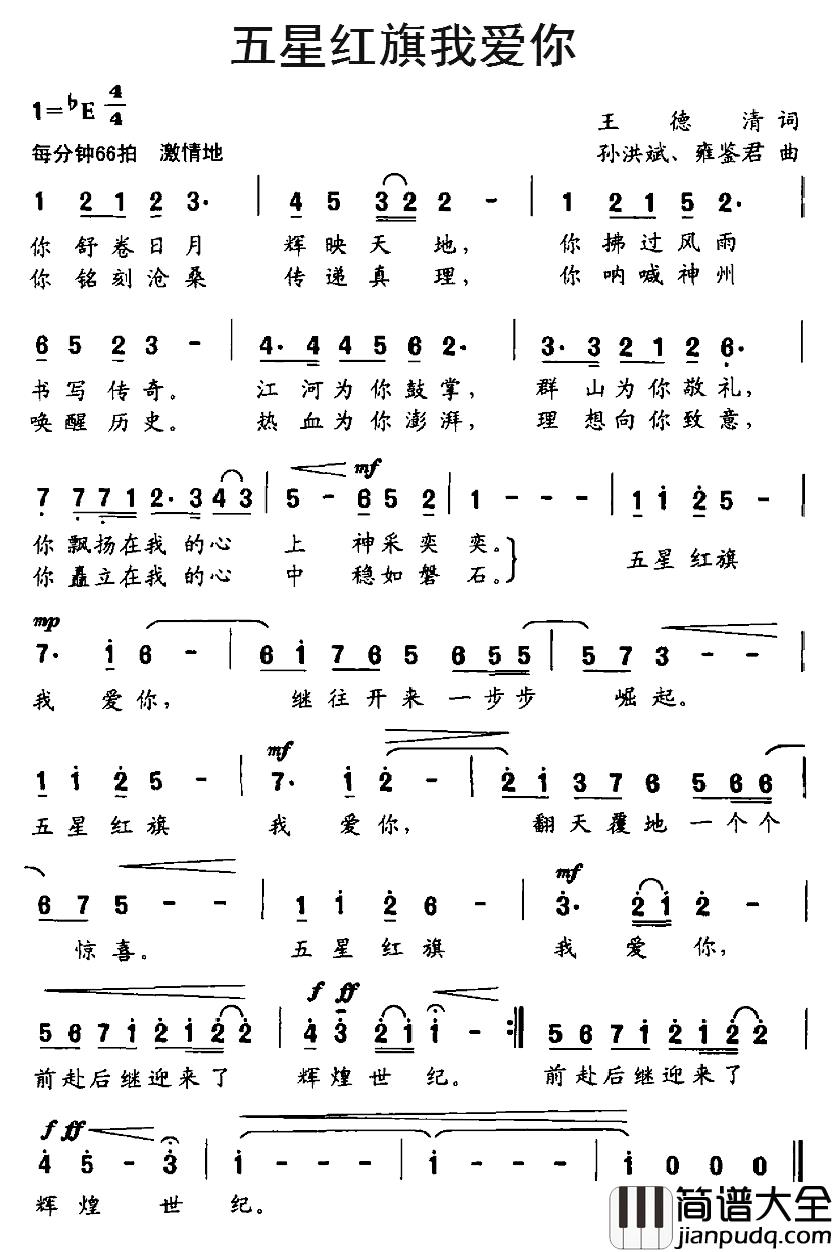 五星红旗我爱你
1=♭E 4/4
王德清词
每分钟66拍 激情地
孙洪斌、雍鉴君曲
1 2 1 2 3· | 4 5 3 2 2 - | 1 2 1 5 2· |
你舒卷日月 辉映天地, 你拂过风雨
你铭刻沧桑 传递真理, 你呐喊神州
6 5 2 3 - | 4· 4 4 5 6 2· | 3· 3 2 1 2 6· |
书写传奇。 江河为你鼓掌, 群山为你敬礼,
唤醒历史。 热血为你澎湃, 理想向你致意,
mf
7 7 7 1 2· 3 4 3 | 5 - 6 5 2 | 1 - - - | 1 1 2 5 - |
你飘扬在我的心上 神采奕奕。 五星红旗
你矗立在我的心中 稳如磐石。
mp
7· 1 6 - | 6 1 7 6 5 6 5 5 | 5 7 3 - - |
我爱你, 继往开来一步步 崛起。
mf
1 1 2 5 - | 7· 1 2 - | 2 1 3 7 6 5 6 6 |
五星红旗 我爱你, 翻天覆地一个个
mf
6 7 5 - - | 1 1 2 6 - | 3· 2 1 2 - |
惊喜。 五星红旗 我爱你,
f ff
5 6 7 1 2 1 2 2 | 4 3 2 1 1 - :| 5 6 7 1 2 1 2 2 |
前赴后继迎来了 辉煌世纪。 前赴后继迎来了
f ff
4 5 - 3 | 1 - - - | 1 - - - | 1 0 0 0 |
辉煌世纪。
简谱大全
jianpudq.com